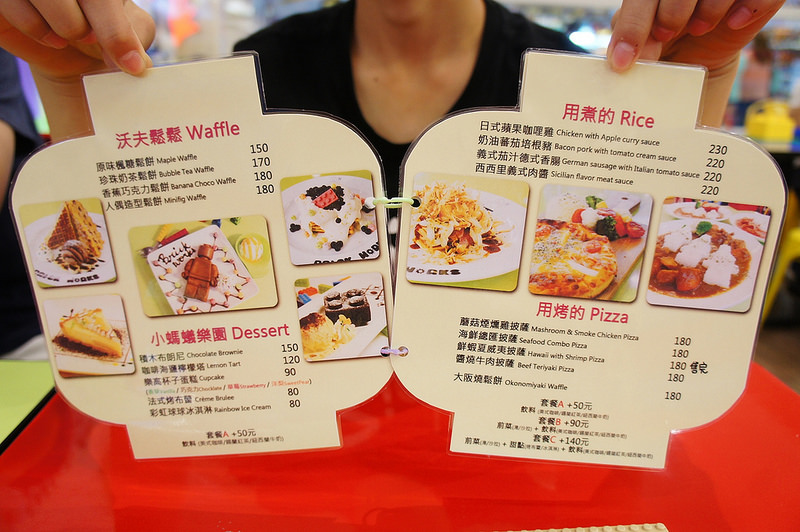 沃夫鬆鬆 Waffle
原味楓糖鬆餅 Maple Waffle 150
珍珠奶茶鬆餅 Bubble Tea Waffle 170
香蕉巧克力鬆餅 Banana Choco Waffle 180
人偶造型鬆餅 Minifig Waffle 180
小螞蟻樂園 Dessert
積木布朗尼 Chocolate Brownie 150
咖啡海鹽檸檬塔 Lemon Tart 120
樂高杯子蛋糕 Cupcake 90
法式烤布蕾 Crème Brulee 80
彩虹球球冰淇淋 Rainbow Ice Cream 80
套餐A +50元
飲料 (美式咖啡/錫蘭紅茶/紐西蘭牛奶)
用煮的 Rice
日式蘋果咖哩雞 Chicken with Apple curry sauce 230
奶油蕃茄培根豬 Bacon pork with tomato cream sauce 220
義式茄汁德式香腸 German sausage with Italian tomato sauce 220
西西里式肉醬 Sicilian flavor meat sauce 220
用烤的 Pizza
蘑菇煙燻雞披薩 Mashroom & Smoke Chicken Pizza 180
海鮮總匯披薩 Seafood Combo Pizza 180
鮮蝦夏威夷披薩 Hawaii with Shrimp Pizza 180 售完
醬燒牛肉披薩 Beef Teriyaki Pizza 180
大阪燒鬆餅 Okonomiyaki Waffle 180
套餐A +50元
飲料 (美式咖啡/錫蘭紅茶/紐西蘭牛奶)
套餐B +90元
前菜(湯/沙拉) + 飲料(美式咖啡/錫蘭紅茶/紐西蘭牛奶)
套餐C +140元
前菜(湯/沙拉) + 甜點(烤布蕾/冰淇淋) + 飲料(美式咖啡/錫蘭紅茶/紐西蘭牛奶)